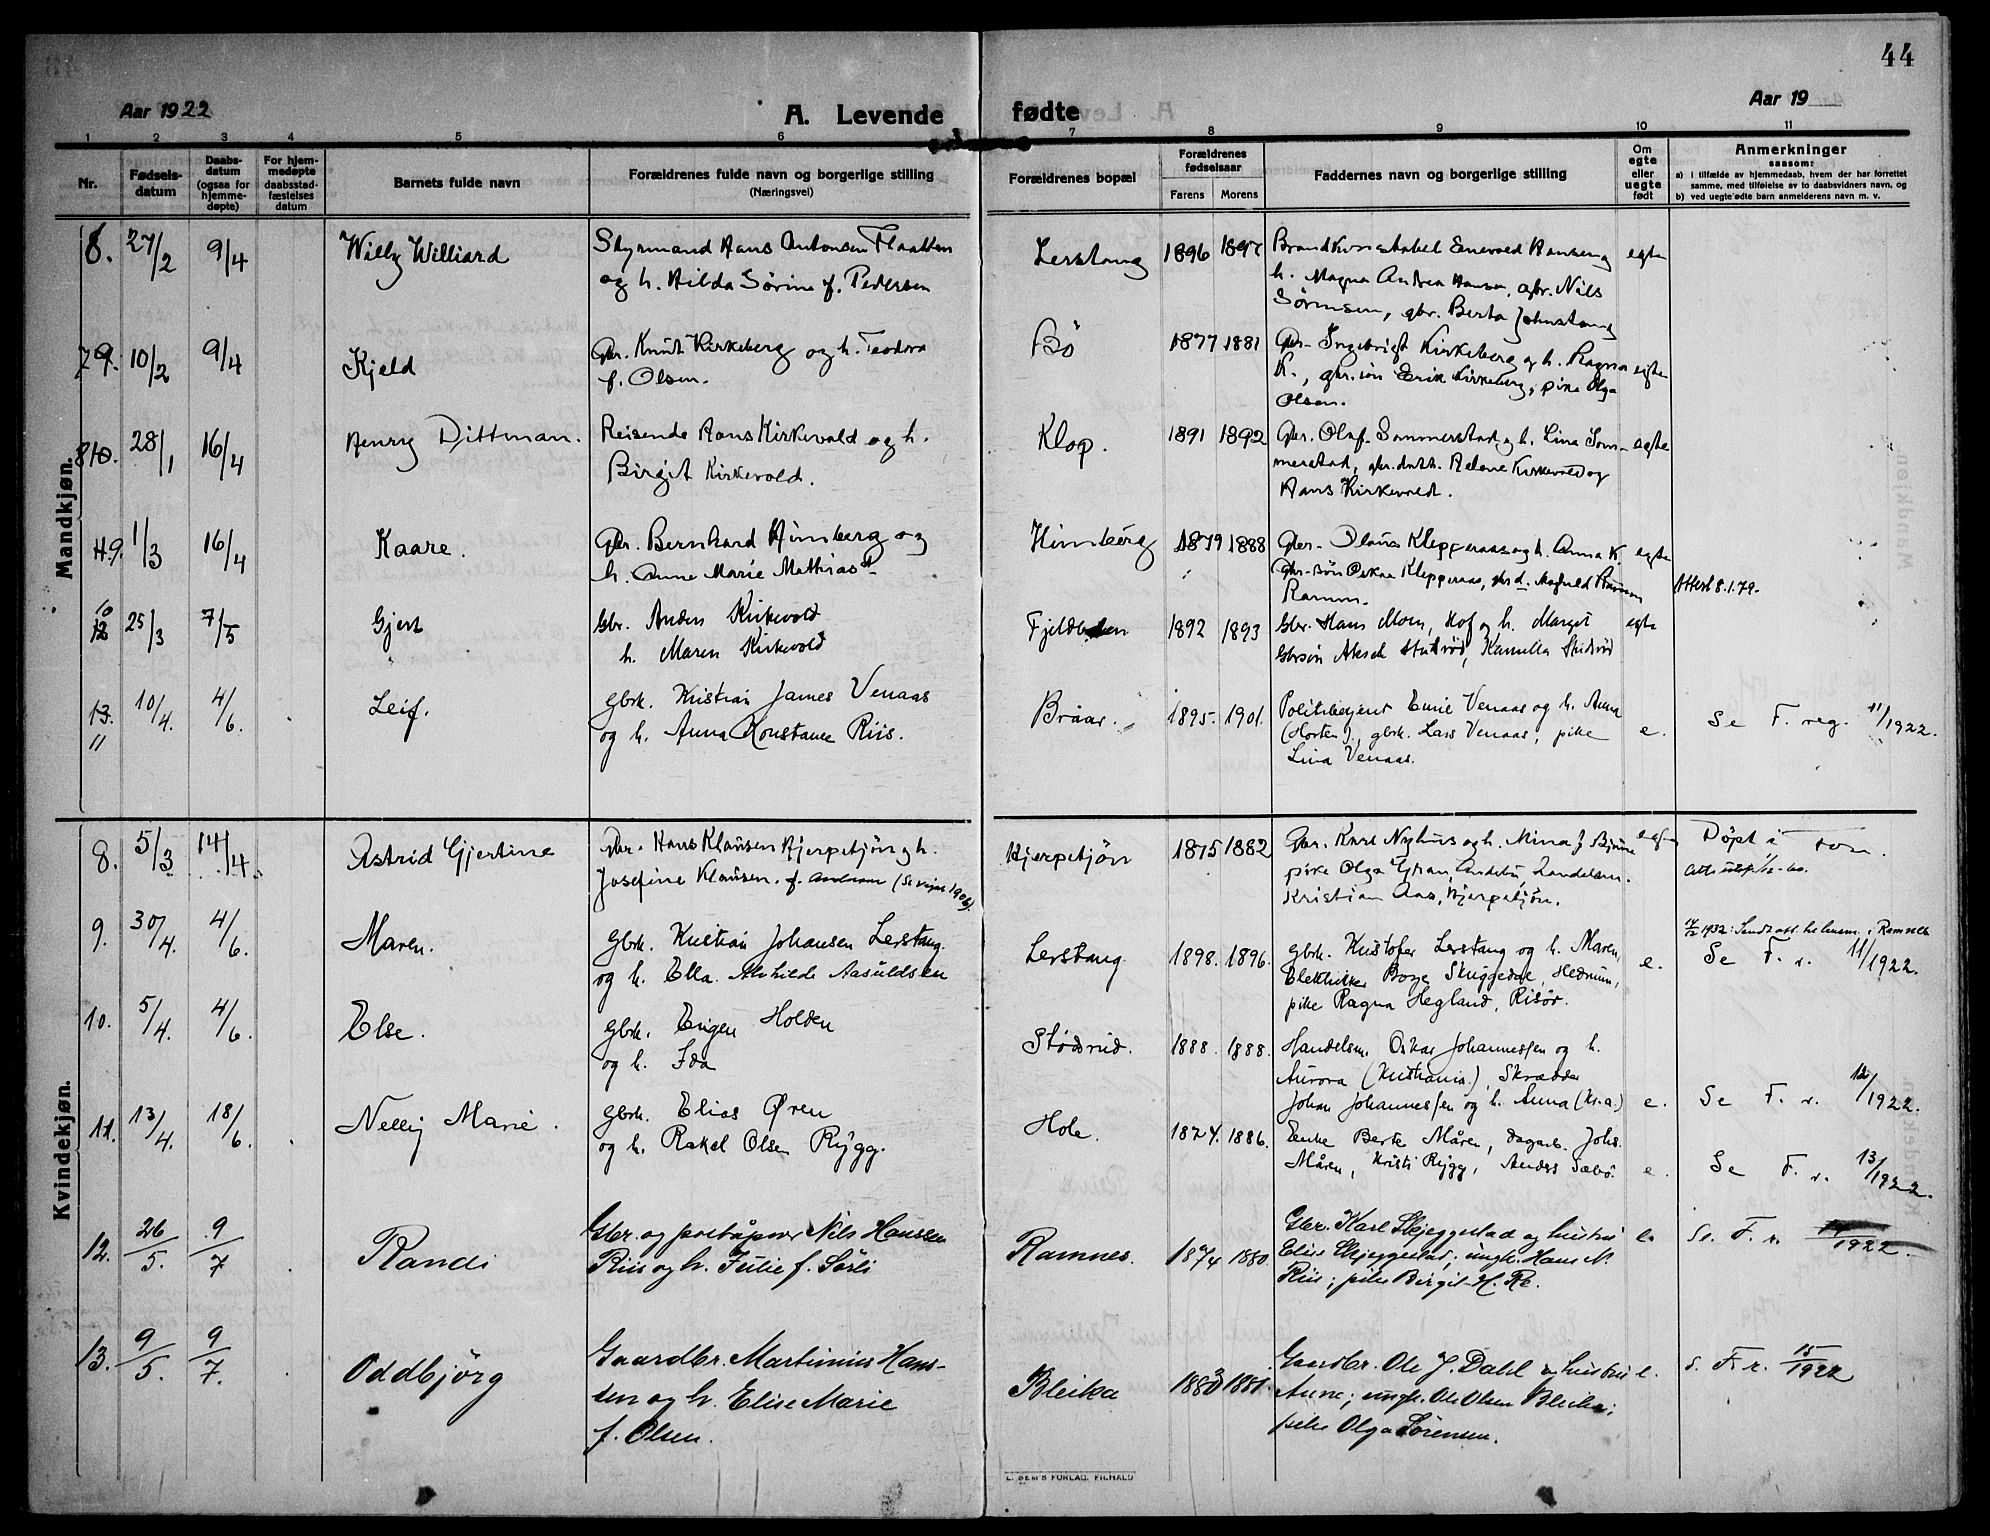 44
Aar 1922
A. Levende
fødte
Aar 19
1 2 3 4 5 6 7 8 9 10 11
Nr.
Fødsels-
datum
Daabs-
datum
(ogsaa for
hjemme-
døpte)
For hjem-
medøpte
daabsstad-
fæstelses
datum
Barnets fulde navn
Forældrenes fulde navn og borgerlige stilling
(Næringsvei)
Forældrenes bopæl
Forældrenes
fødselsaar
Farens Morens
Faddernes navn og borgerlige stilling
Om
egte
eller
uegte
født
Anmerkninger
saasom:
a) i tilfælde av hjemmedaab, hvem der har forrettet
samme, med tilføielse av to daabsvidners navn, og
b) ved uegte fødte barn anmelderens navn m. v.
Mandkjøn.
8. 27/2 9/4 Willy Williard
Styrmand Hans Antonsen Flaatten
og h. Hilda Sørine f. Pedersen
Lerstang 1896 1897
Brandkonstabel Enevold Hansen og
h. Magna Andrea Hansen, gbr. Nils
Sørensen, gbr. Berta Johnstang
egte
79. 10/2 9/4 Kjeld
Gbr. Knut Kirkeberg og h. Teodora
f. Olsen.
Bö 1877 1881
Gbr. Ingebrigt Kirkeberg og h. Ragna
K., gbr.søn Erik Kirkeberg, pike Olga
Olsen.
egte
810. 28/1 16/4 Henry Dittman.
Reisende Hans Kirkevold og h.
Birgit Kirkevold.
Klop. 1891 1892
Gbr. Olaf Sommerstad og h. Lina Som-
merstad, gbr. datt. Helene Kirkevold og
Hans Kirkevold.
egte
9. 1/3 16/4 Kaare.
Gbr. Bernhard Himberg og
h. Anne Marie Mathiasd.
Himberg 1879 1888
Gbr. Olaus Kleppeaas og h. Anna K.
Gbr.søn Oskar Kleppeaas, gbr.d. Magnild
Ramm.
egte
Attest 8.1.79.
10
12 25/3 7/5 Gjert
Gbr. Anders Kirkevold
h. Maren Kirkevold
1892 1893
Gbr. Hans Moen, Hof og h. Marget
Gbrsøn Aksel Stulrød, Kamilla
egte
13. 10/4. 4/6. Leif.
11
gbrk. Kristian James Venaas
og h. Anna Konstance Riis.
Bråar. 1895. 1901.
Politibetjent Emil Venaas og h. Anna
(Horten), gbrk. Lars Venaas, pike
Lina Venaas.
e.
Se F. reg. 11/1922.
Kvindekjøn.
8. 5/3 14/4. Astrid Gjertine
Gbr. Hans Klausen Hjerpetjøn og h.
Josefine Klausen. f. (Se vigsel 1906).
Hjerpetjön 1875 1882
Gbr. Karl Nyhus og h. Mina J
pike Olga Gran, Andebu,
Kristian Aas, Hjerpetjön.
Døpt i
9. 30/4. 4/6. Maren.
gbrk. Kristian Johansen Lerstang.
og h. Ella Alvhilde Aasuldsen
Lerstang. 1898. 1896.
gbrk. Kristofer Lerstang og h. Maren,
Borge Skuggedal, Hedrum,
pike Ragna Hegland, Risör.
e.
Se F. r. 11/1922.
10. 5/4. 4/6. Else.
gbrk. Eugen Holden
og h. Ida
Stödsrud. 1888. 1888.
Handelsm. Oskar Johannessen og h.
Aurora (Kristiania.), Skrædder
Johan Johannessen og h. Anna (Kr.a.)
e.
Se F. r. 12/1922.
11. 13/4. 18/6. Nelly Marie.
gbrk. Elias Øren
og h. Rakel Olsen Rygg.
Hole. 1874. 1886.
Enke Berte Måren, dagarb. Johs.
Måren, Kristi Rygg, Anders Sæbö.
e.
Se F. r. 13/1922.
12. 26/5. 9/7 Randi
Gbr. og postaapner Nils Hansen
Riis og h. Julie f. Sørli
Ramnes. 1874 1880
Gbr. Karl Skjeggestad og hustru
Elise Skjeggestad; ungk. Hans N.
Riis; pike Birgit H. Re.
e.
Se. F. r. 14/1922.
13. 9/5. 9/7. Oddbjörg
Gaardbr. Martinius Han-
sen og h. Elise Marie
f. Olsen.
Bleika 1883 1881.
Gaardbr. Ole J. Dahl og hustru
Anne; ungk. Ole Olsen Bleika;
pike Olga Sörensen.
e.
S. F. r. 15/1922
E. SEM'S FORLAG, FR.HALD